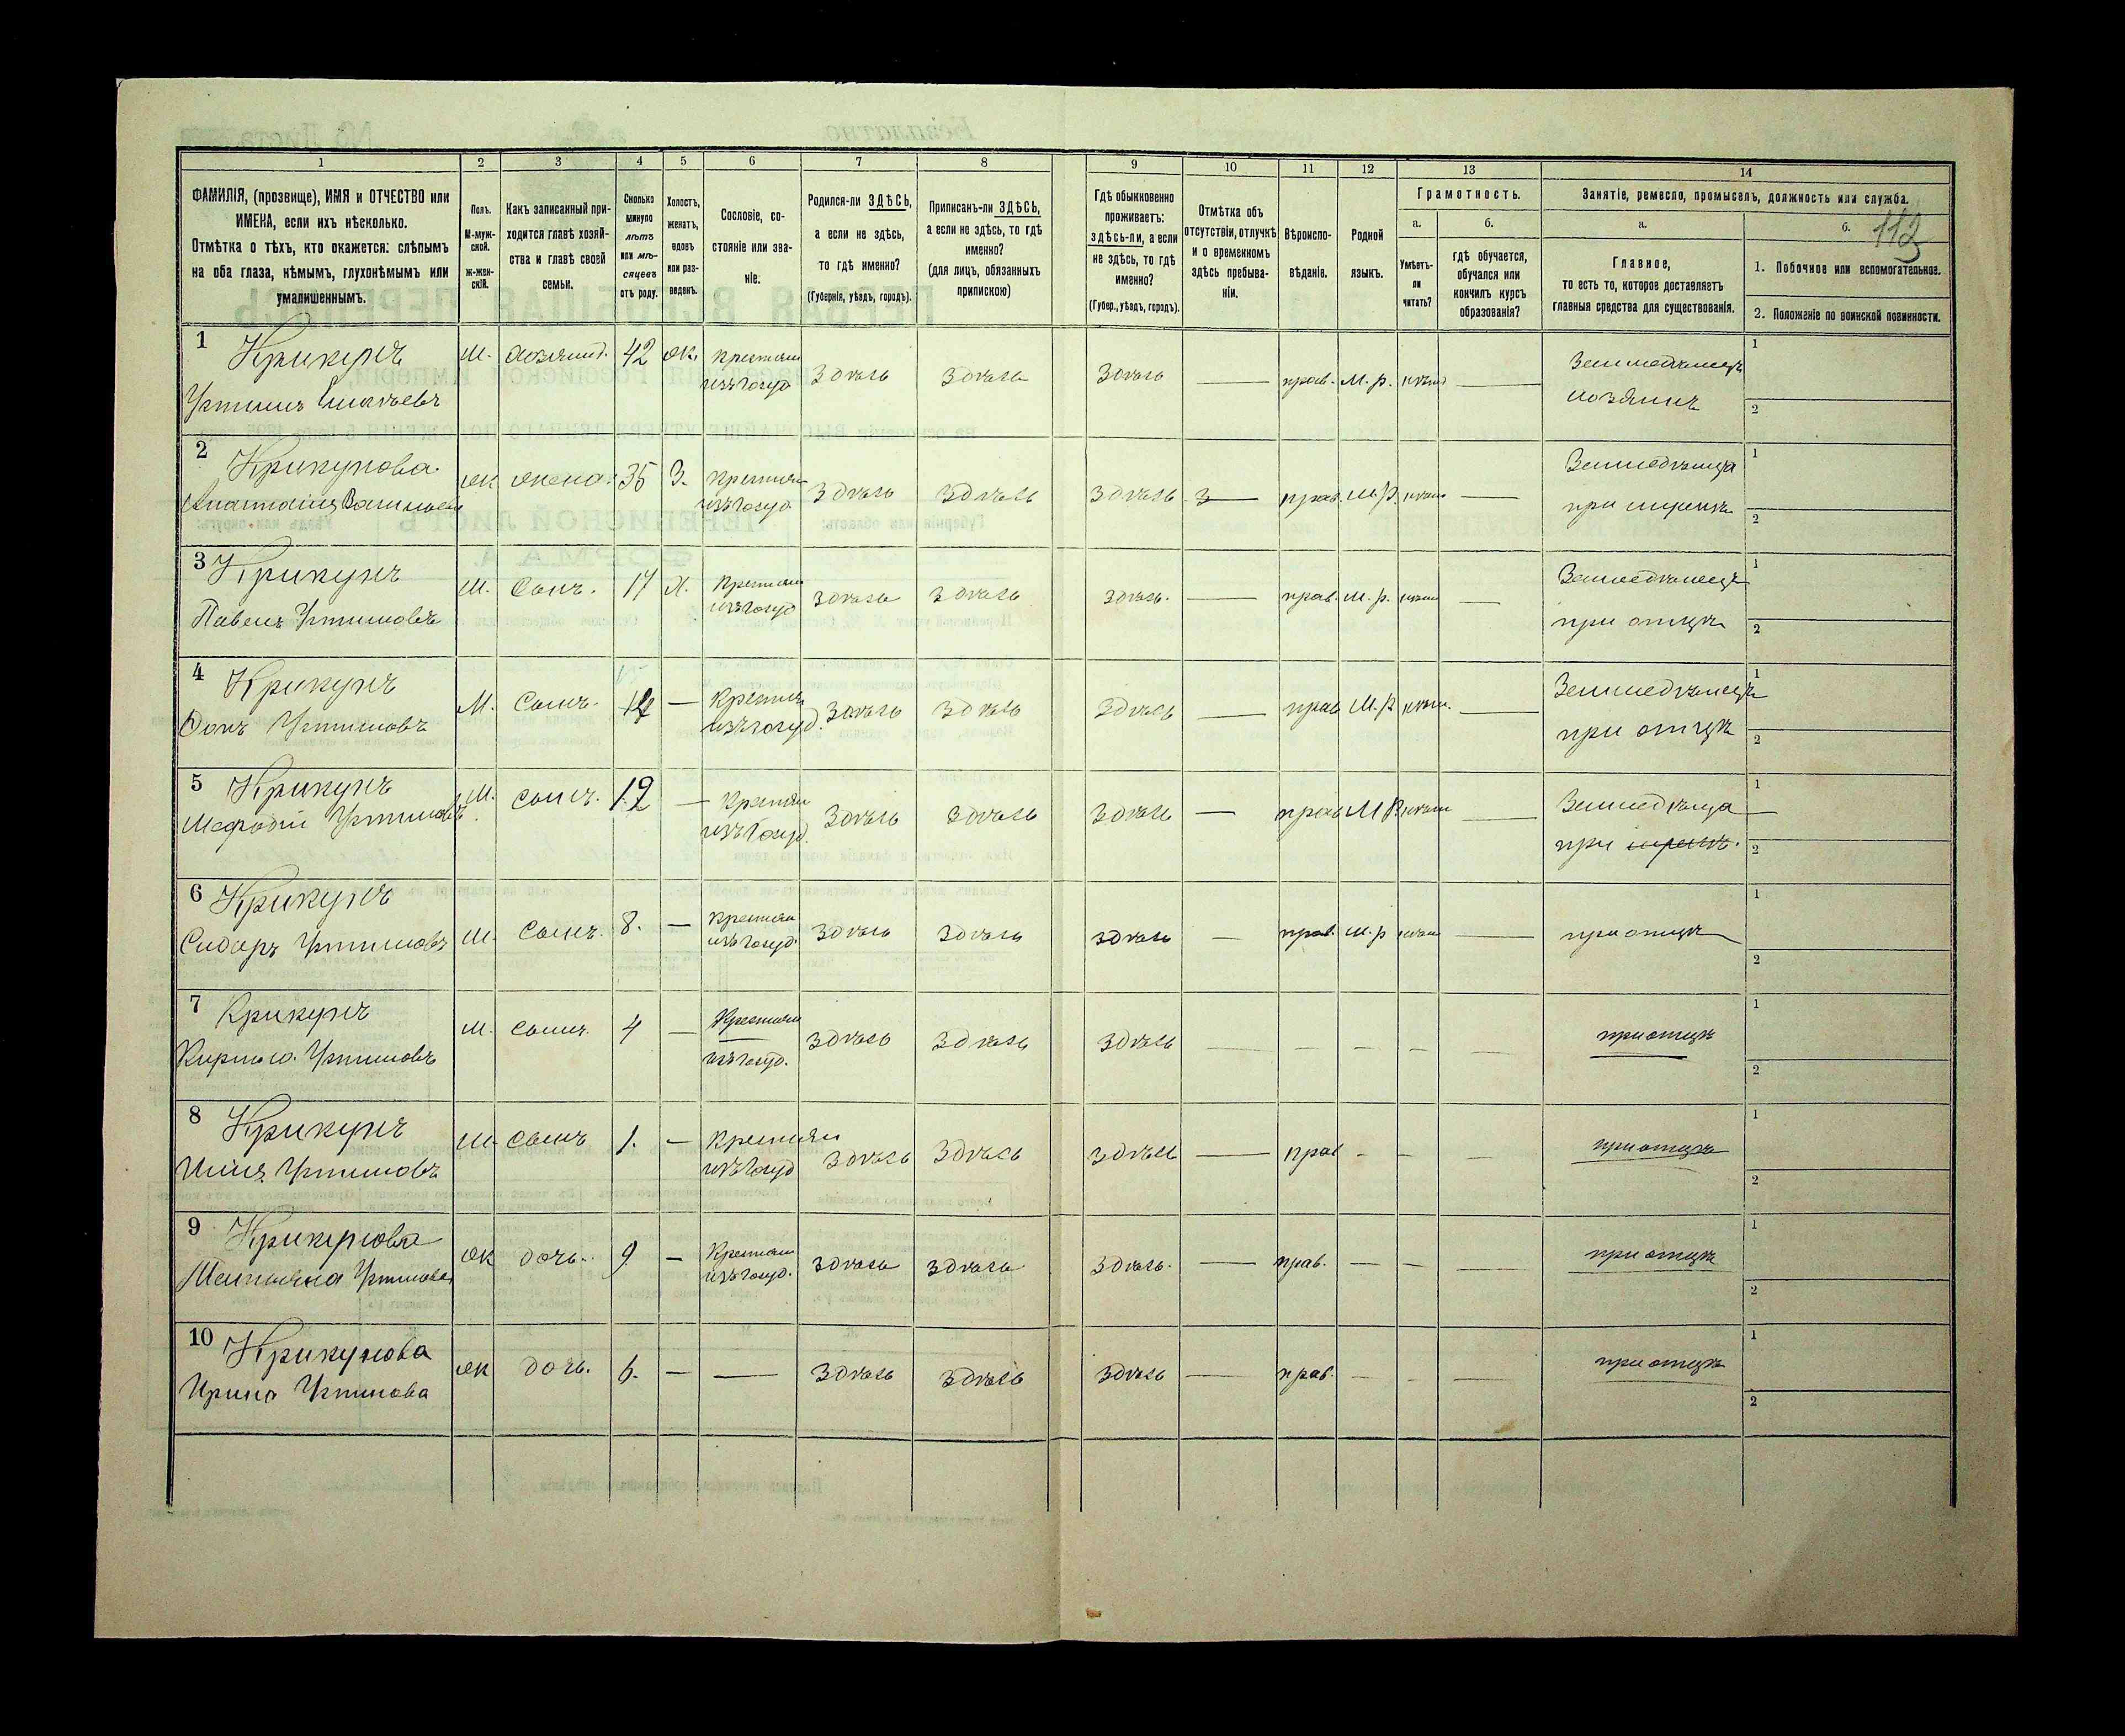 1 2 3 4 5 6 7 8 9 10 11 12 13 14
ФАМИЛІЯ, (прозвище), ИМЯ и ОТЧЕСТВО или
ИМЕНА, если ихъ нѣсколько.
Отмѣтка о тѣхъ, кто окажется: слѣпымъ
на оба глаза, нѣмымъ, глухонѣмымъ или
умалишеннымъ.
Полъ.
М-муж-
ской.
Ж-жен-
скій.
Какъ записанный при-
ходится главѣ хозяй-
ства и главѣ своей
семьи.
Сколько
минуло
лѣтъ
или мѣ-
сяцевъ
отъ роду.
Холостъ,
женатъ,
вдовъ
или раз-
веденъ.
Сословіе, со-
стояніе или зва-
ніе.
Родился-ли ЗДѢСЬ,
а если не здѣсь,
то гдѣ именно?
(Губернія, уѣздъ, городъ).
Приписанъ-ли ЗДѢСЬ,
а если не здѣсь, то гдѣ
именно?
(для лицъ, обязанныхъ
припискою)
Гдѣ обыкновенно
проживаетъ:
здѣсь-ли, а если
не здѣсь, то гдѣ
именно?
(Губер., уѣздъ, городъ).
Отмѣтка объ
отсутствіи, отлучкѣ
и о временномъ
здѣсь пребыва-
ніи.
Вѣроиспо-
вѣданіе.
Родной
языкъ.
Грамотность.
а.
Умѣетъ-
ли
читать?
б.
гдѣ обучается,
обучался или
кончилъ курсъ
образованія?
Занятіе, ремесло, промыселъ, должность или служба.
а.
Главное,
то есть то, которое доставляетъ
главныя средства для существованія.
б.
113
1. Побочное или вспомогательное.
2. Положеніе по воинской повинности.
1 Крикунъ М. 42 жн. Крестьян изъ госуд здѣсь здѣсь здѣсь — прав. М. р. нѣтъ — Земледѣлецъ 1
Устинъ хозяинъ 2
2 Крикунова жк жена 35 З. Крестьян изъ госуд здѣсь здѣсь здѣсь — прав. М. р. нѣтъ — Земледѣлца 1
Анастасія Васильева при 2
3 Крикунъ М. Сынъ. 17 Х. Крестьян изъ госуд здѣсь здѣсь здѣсь. — прав. М. р. нѣтъ — Земледѣлецъ 1
Павелъ Устиновъ при отцѣ 2
4 Крикунъ М. Сынъ. — Крестьян изъ госуд. здѣсь здѣсь здѣсь — прав М. р нѣтъ. — Земледѣлецъ 1
Устиновъ при отцѣ 2
5 Крикунъ М. сынъ. 12 — Крестьян изъ госуд. здѣсь здѣсь здѣсь — прав М. Р. нѣтъ — Земледѣлца 1
Мефодій Устиновъ при 2
6 Крикунъ М. Сынъ. 8. — Крестьян изъ госуд. здѣсь здѣсь здѣсь — прав. М. р нѣтъ — при отцѣ 1
Сидоръ Устиновъ 2
7 Крикунъ М. Сынъ. 4 — Крестьян изъ госуд. здѣсь здѣсь здѣсь — — — — — при отцѣ 1
Кирило. Устиновъ 2
8 Крикунъ М. Сынъ 1. — Крестьян изъ госуд здѣсь здѣсь здѣсь — прав - — — при отцѣ 1
Илія Устиновъ 2
9 Крикунова жк дочь. 9. — Крестьян изъ госуд. здѣсь здѣсь здѣсь. — прав. — — — при отцѣ 1
Устинова 2
10 Крикунова жк дочь. 6. — — здѣсь здѣсь здѣсь — прав. — — — при отцѣ 1
Ирина Устинова 2